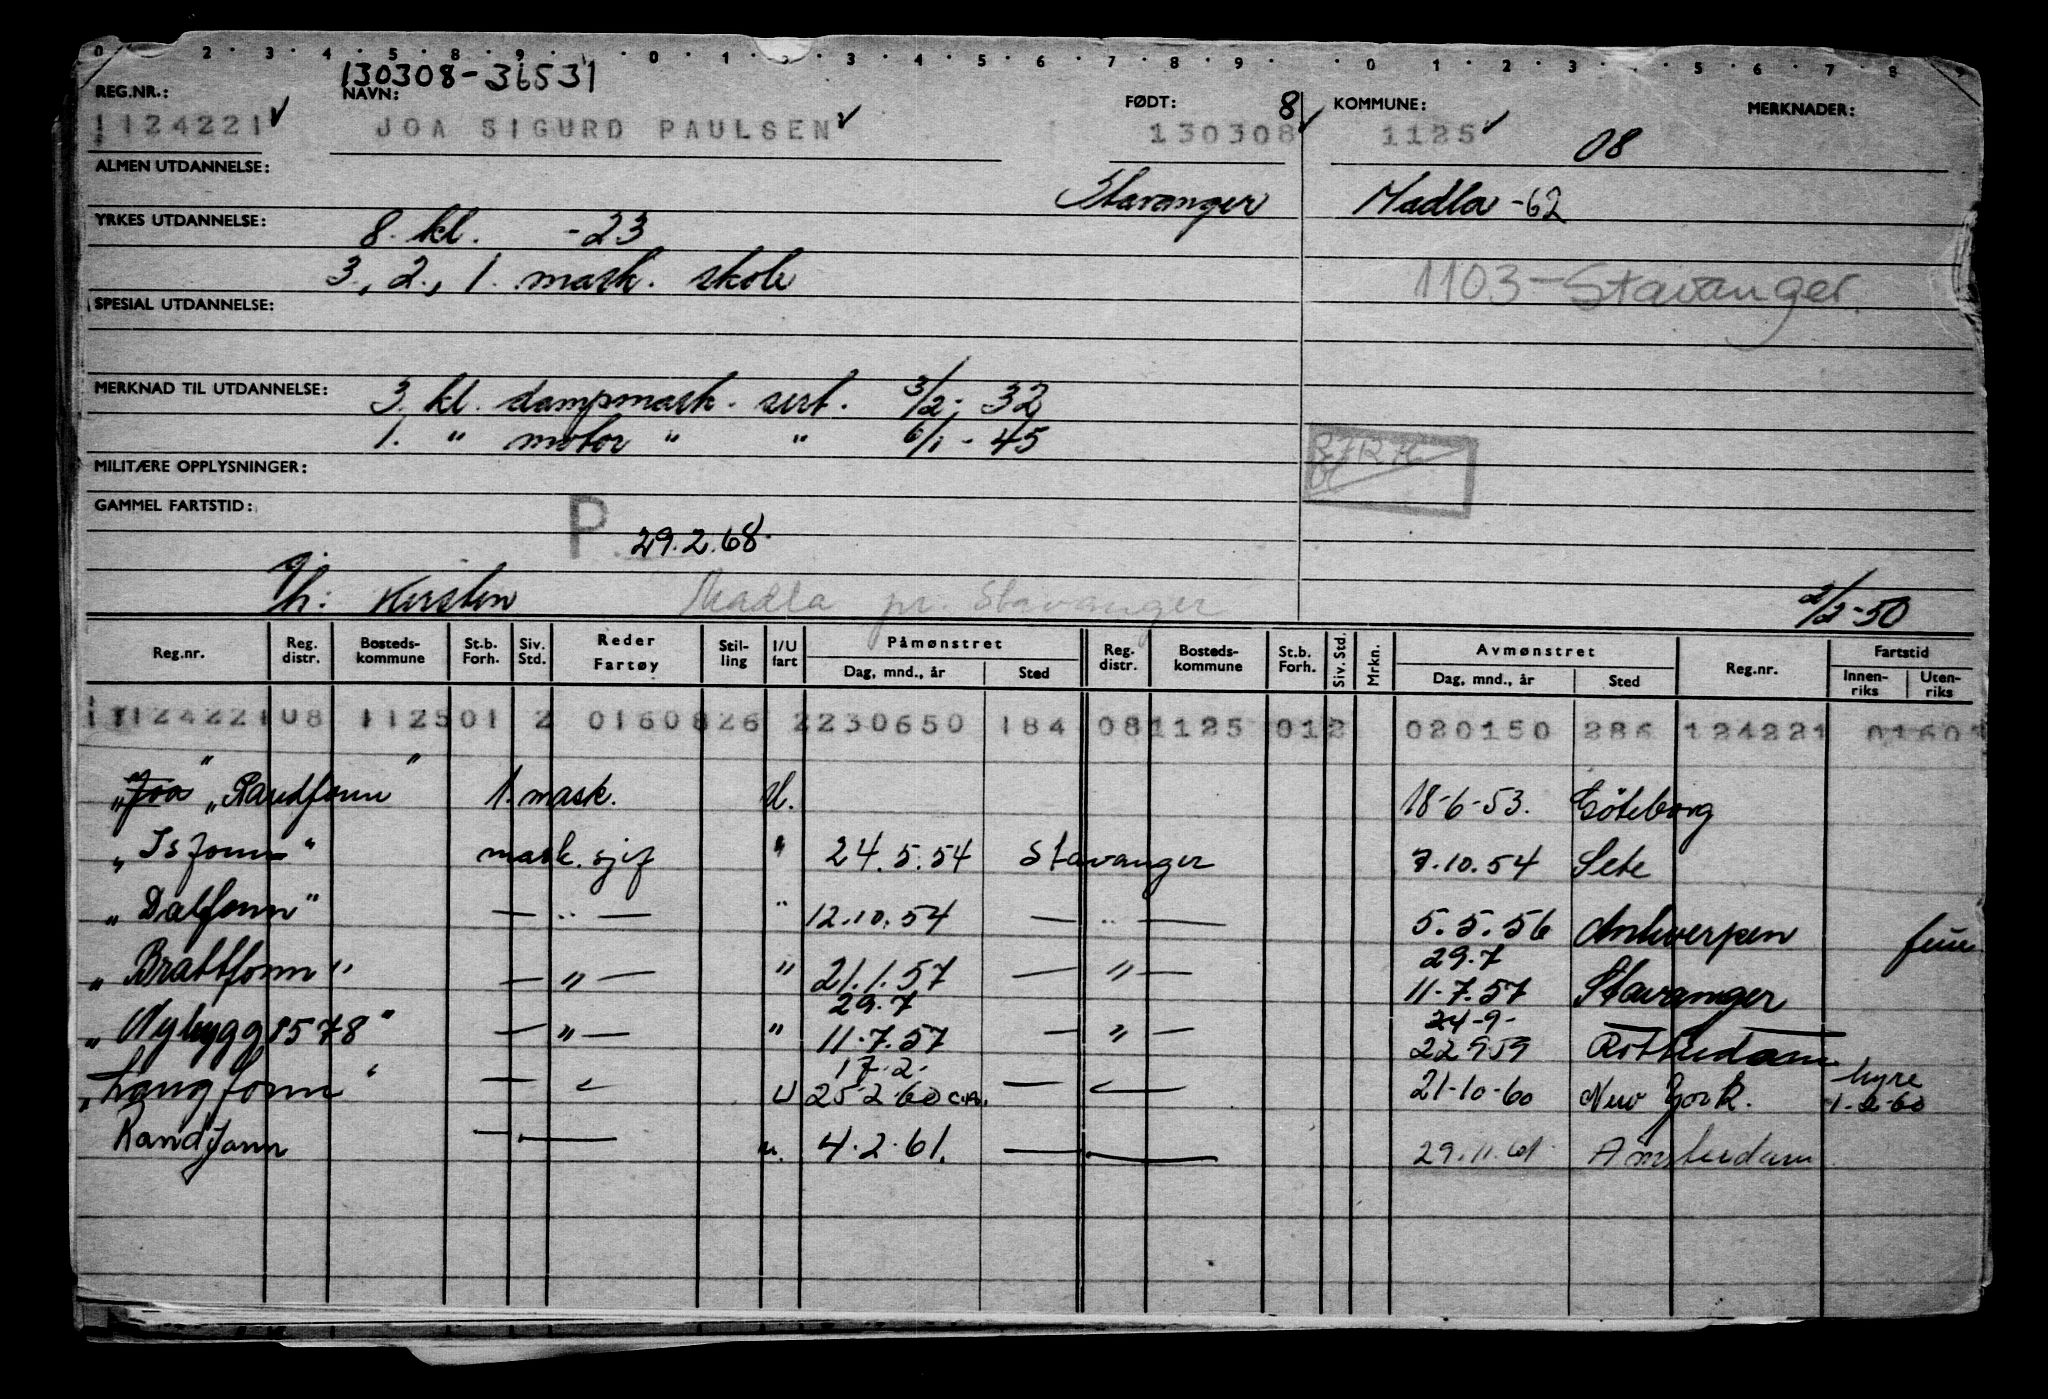 0 · 2 · 3 · 4 · 5 · 8 · 9 · · 0 · 1 · 2 · 3 · 4 · 5 · 6 · 7 · 8 · 9 · · 0 · 1 · 2 · 3 · · 5 · 6 · 7 · 8
130308-36531
REG.NR.: NAVN: FØDT: 8 KOMMUNE: MERKNADER:
1124221 ✓ JOA SIGURD PAULSEN ✓ 130308 ✓ 1125 ✓ 08
ALMEN UTDANNELSE:
Stavanger Madla -62
YRKES UTDANNELSE: 8. kl. -23
3., 2., 1. mask. skole
1103-Stavanger.
SPESIAL UTDANNELSE:
MERKNAD TIL UTDANNELSE: 3. kl. dampmask. sert. 3/2- 32
1. " motor " " 6/1 - 45
MILITÆRE OPPLYSNINGER:
GAMMEL FARTSTID:
P 29.2.68.
h: Kirsten Madla pr. Stavanger 2/2-50
Reg.nr. Reg. distr. Bosteds-kommune St.b. Forh. Siv. Std. Reder Fartøy Stil-ling I/U fart Påmønstret Dag, mnd., år Sted Reg. distr. Bosteds-kommune St.b. Forh. Siv. Std. Mrkn. Avmønstret Dag, mnd., år Sted Reg.nr. Fartstid Innen-riks Uten-riks
1124221 08 1125 01 2 0160826 2230650 184 08 1125 012 020150 286 124221 01601
" "
"Randfonn" 1. mask. U. 18-6-53. Göteborg
"Isfonn" mask. sjef " 24.5.54 Stavanger 7.10.54 Sete
"Dalfonn" — " — " 12.10.54 — " — 5.5.56 Antwerpen
29.7
"Brattfonn" — " — " 21.1.57 — " — 11-7.57 Stavanger
29.7 24-9-
"Nybygg 8578" — " — " 11.7.57 — " — 22 9 59 Rotterdam
17.2. hyre
"Langfonn" — " — U 25-2-60 — " — 21-10-60 New York. 1-2-60
Randfonn — — u. 4.2.61. — — 29.11.61. Amsterdam